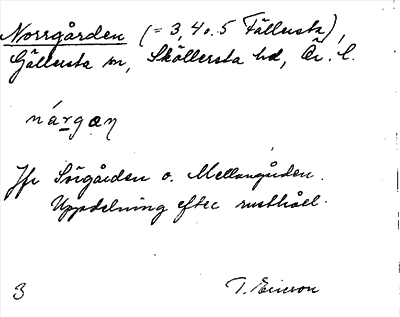 Norrgården (= 3, 4 o. 5 Fällersta),
Gällersta sn, Sköllersta hd, Ör. l.
nárgæŋ
Jfr Sörgården o. Mellangården.
Uppdelning efter rusthåll.
3 T. Ericson